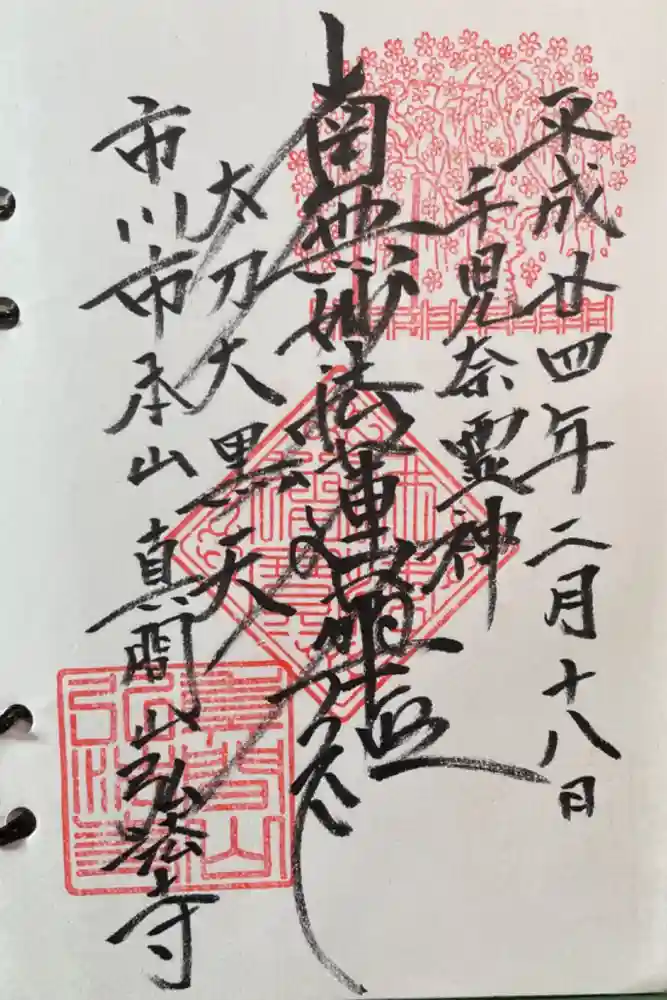 平成廿四年二月十八日
手児奈霊神
南無妙法蓮華経
太刀大黒天
市川市本山真間山弘法寺
真間山
弘法寺